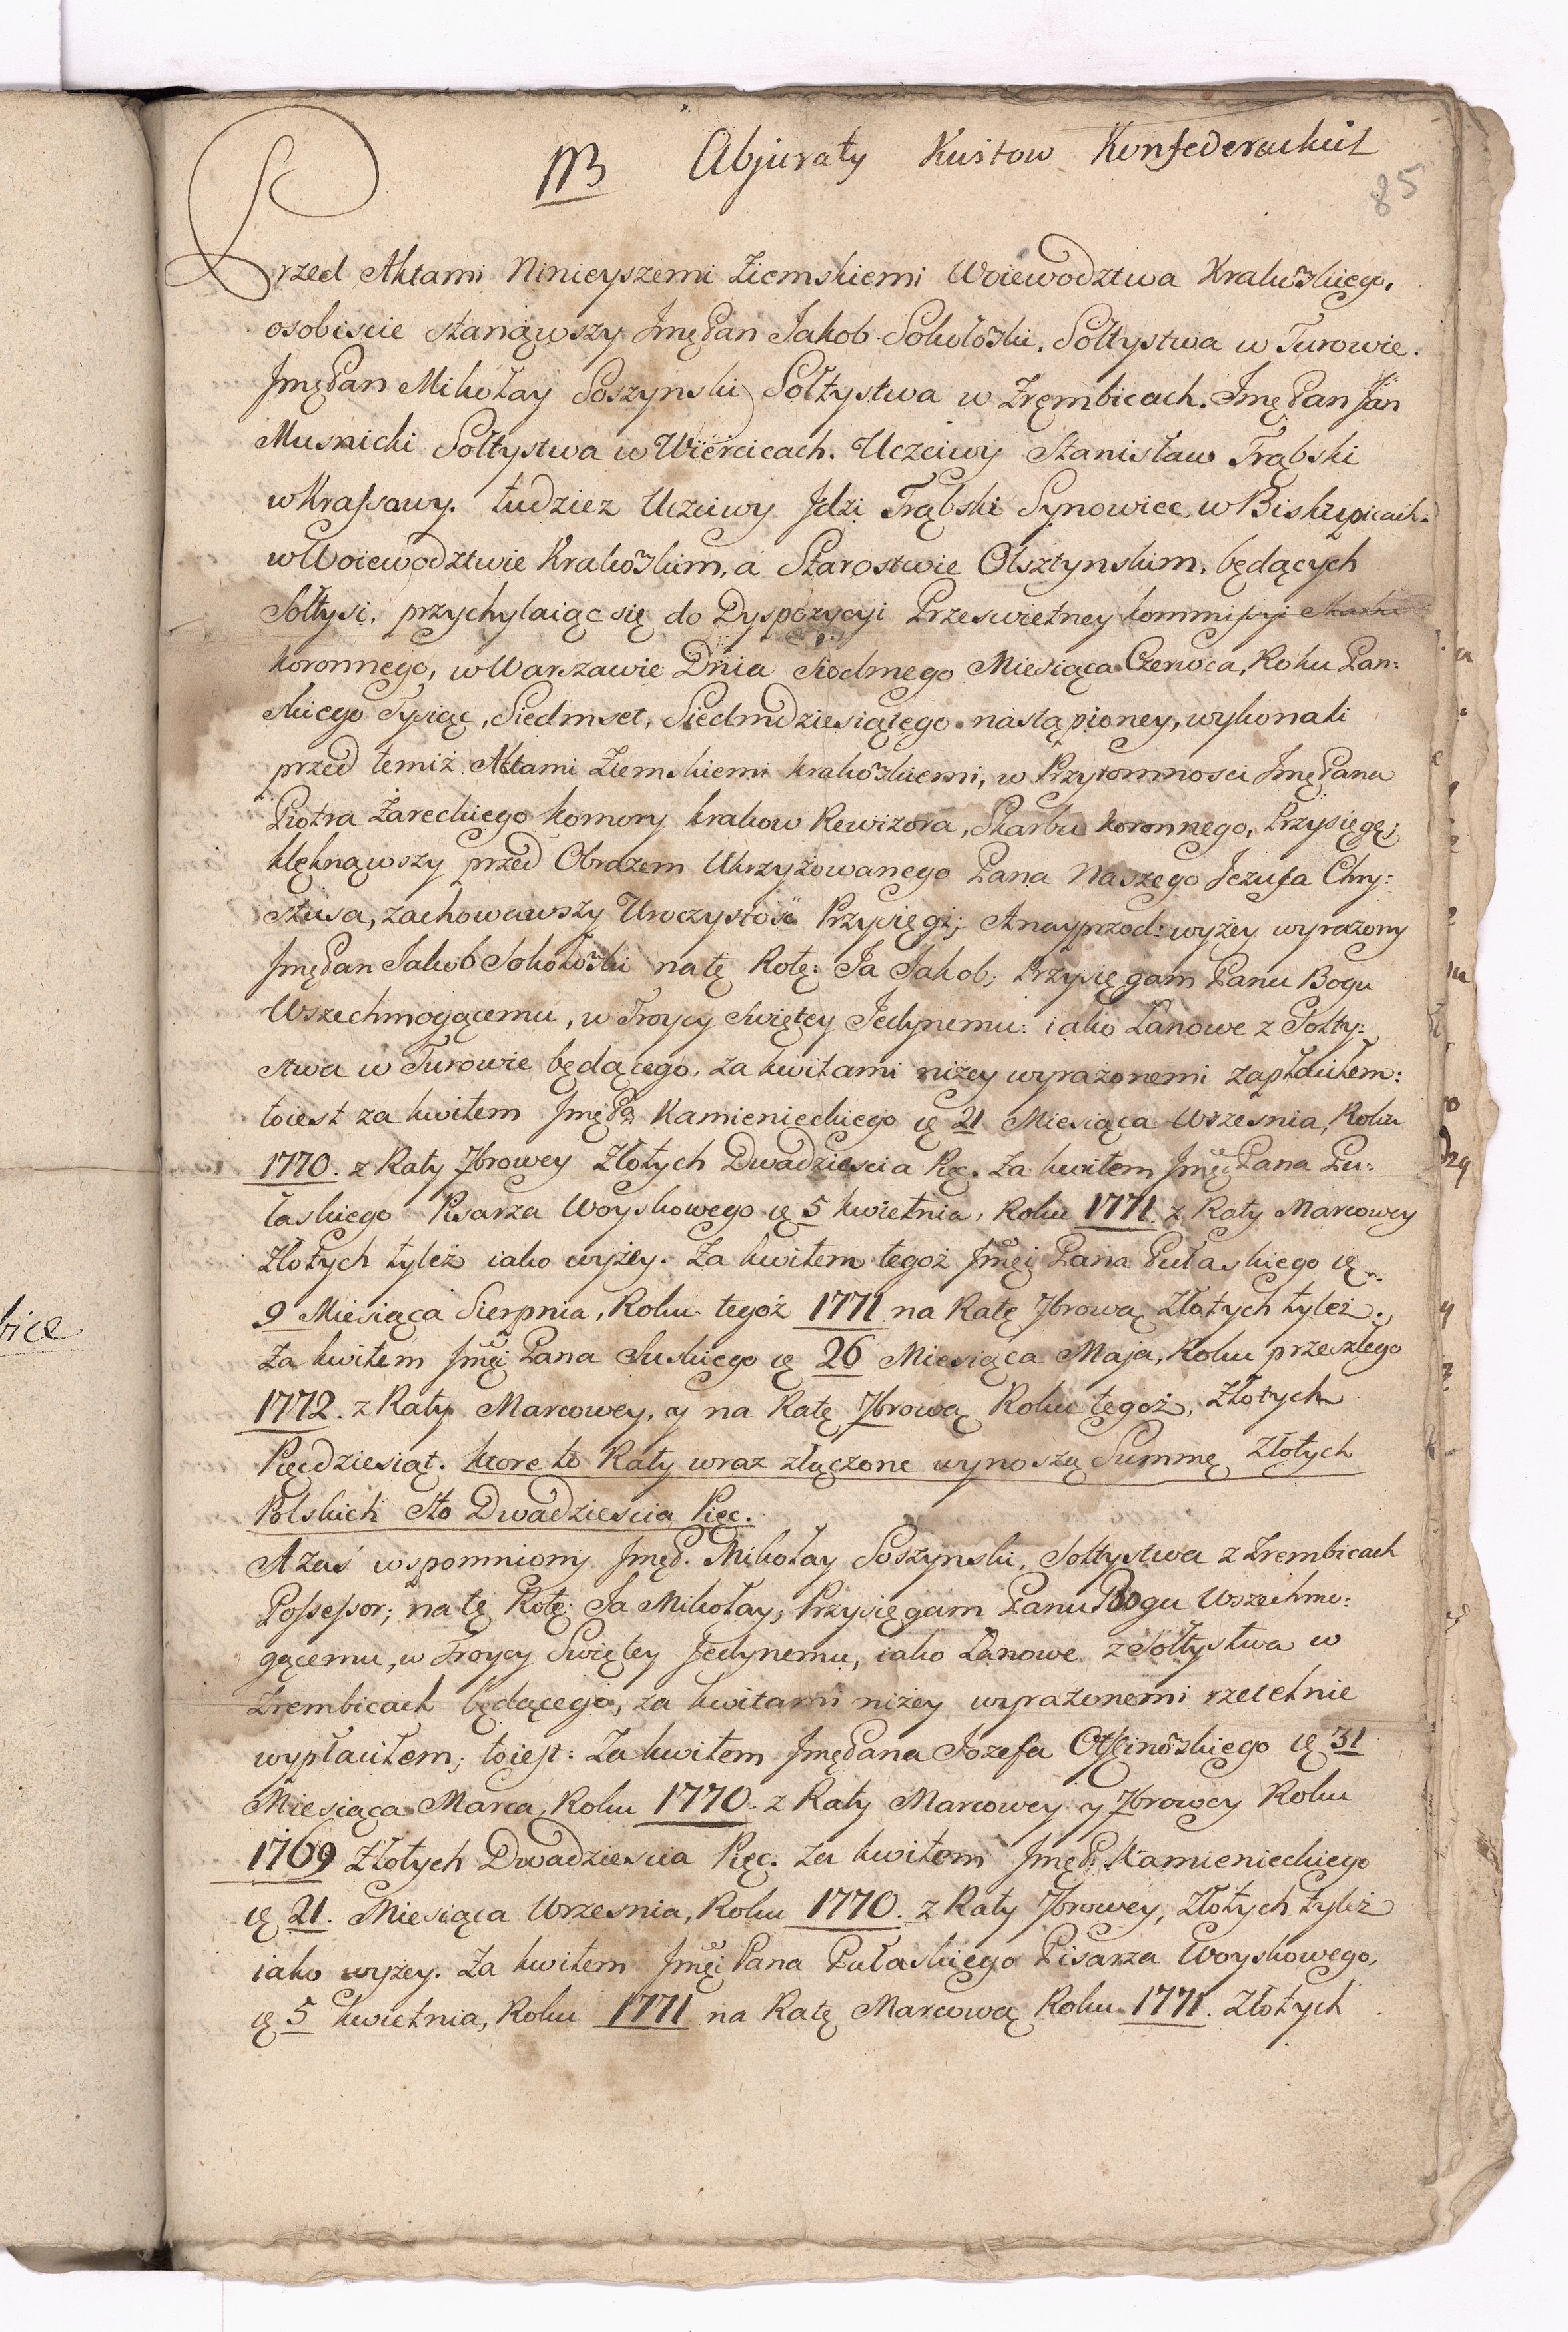 NB Abjuraty Kwitow Konfederackich
85
Przed Aktami Ninieyszemi Ziemskiemi Woiewodztwa Krakowskiego,
osobiscie stanąwszy JmęPan Jakob Sokołowski, Sołtystwa w Turowie.
JmęPan Mikołay Soszynski Sołtystwa w Zrębicach. JmęPan Jan
Musnicki Sołtystwa w Wiercicach. Uczciwy Stanisław Trąbski
w Krassawy. tudziez Uczciwy Jdzi Trąbski Synowiec w Biskupicach.
w Woiewodztwie Krakowskim, a Starostwie Olsztynskim, będących
Sołtysi, przychylaiąc się do Dyspozycyi Przeswietney kommissyi Skarbu
koronnego, w Warszawie Dnia siodmego Miesiąca Czerwca, Roku Pan:
skiego Tysiąc, Siedmset, Siedmdziesiątego nastąpioney, wykonali
przed temiż Aktami Ziemskiemi krakowskiemi, w Przytomnosci JmęPana
Piotra Zareckiego komory krakow Rewizora, Skarbu koronnego, Przysięgę;
klęknąwszy przed Obrazem Ukrzyżowanego Pana Naszego Jezusa Chry:
stusa, zachowawszy Uroczystość Przysięgi; A nayprzod: wyżey wyrażony
JmęPan Jakob Sokołowski na tę Rotę: Ja Jakob, Przysięgam Panu Bogu
Wszechmogącemu, w Troycy świętey Jedynemu: iako Łanowe z Sołty:
stwa w Turowie będącego, za kwitami niżey wyrażonemi zapłaciłem:
toiest za kwitem JmęPa Kamienieckiego ię 21 Miesiąca Wrzesnia, Roku
1770. z Raty 7browey Złotych Dwadziescia Pięć. Za kwitem Jmęi Pana Pu:
łaskiego Pisarza Woyskowego ię 5 kwietnia, Roku 1771. z Raty Marcowey
Złotych tyleż iako wyżey. Za kwitem tegoż Jmęi Pana Pułaskiego ię
9 Miesiąca Sierpnia, Roku tegoż 1771. na Ratę 7brową Złotych tyleż.
Za kwitem Jmęi Pana Suskiego ię 26 Miesiąca Maja, Roku przeszłego
1772. z Raty Marcowey, y na Ratę 7brową Roku tegoż, Złotych
Pięćdziesiąt. ktore to Raty wraz złączone wynoszą Summę Złotych
Polskich Sto Dwadziescia Pięć.
A zaś wspomniony JmęP. Mikołay Soszynski, Sołtystwa z Zrembicach
Possessor; na tę Rotę: Ja Mikołay, Przysięgam Panu Bogu Wszechmo:
gącemu, w Troycy Swiętey Jedynemu, iako Łanowe z Sołtystwa w
Zrembicach będącego, za kwitami niżey wyrażonemi rzetelnie
wypłaciłem; toiest: Za kwitem JmęPana Jozefa Otfinowskiego ię 31
Miesiąca Marca, Roku 1770. z Raty Marcowey y 7browey Roku
1769 Złotych Dwadziescia Pięć. Za kwitem JmęP. Kamienieckiego
ię 21. Miesiąca Wrzesnia, Roku 1770. z Raty 7browey, Złotych tyleż
iako wyżey. Za kwitem Jmęi Pana Pułaskiego Pisarza Woyskowego,
ię 5 kwietnia, Roku 1771 na Ratę Marcową Roku 1771. Złotych